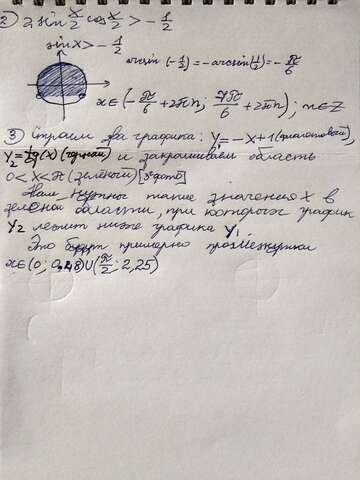 ② 2 sin x/2 cos x/2 > - 1/2
sin x > - 1/2
arcsin (- 1/2) = - arcsin(1/2) = - π/6
x ∈ (- π/6 + 2πn; 7π/6 + 2πn); n ∈ Z
③ Строим два графика: y₁ = -x+1 (фиолетовый),
y₂ = tg(x) (чёрный) и закрашиваем область
0 < x < π (зелёной)
Нам нужны такие значения x в
зелёной области, при которых график
y₂ лежит ниже графика y₁.
Это будут примерно промежутки
x ∈ (0; 0,48) ∪ (π/2; 2,25)